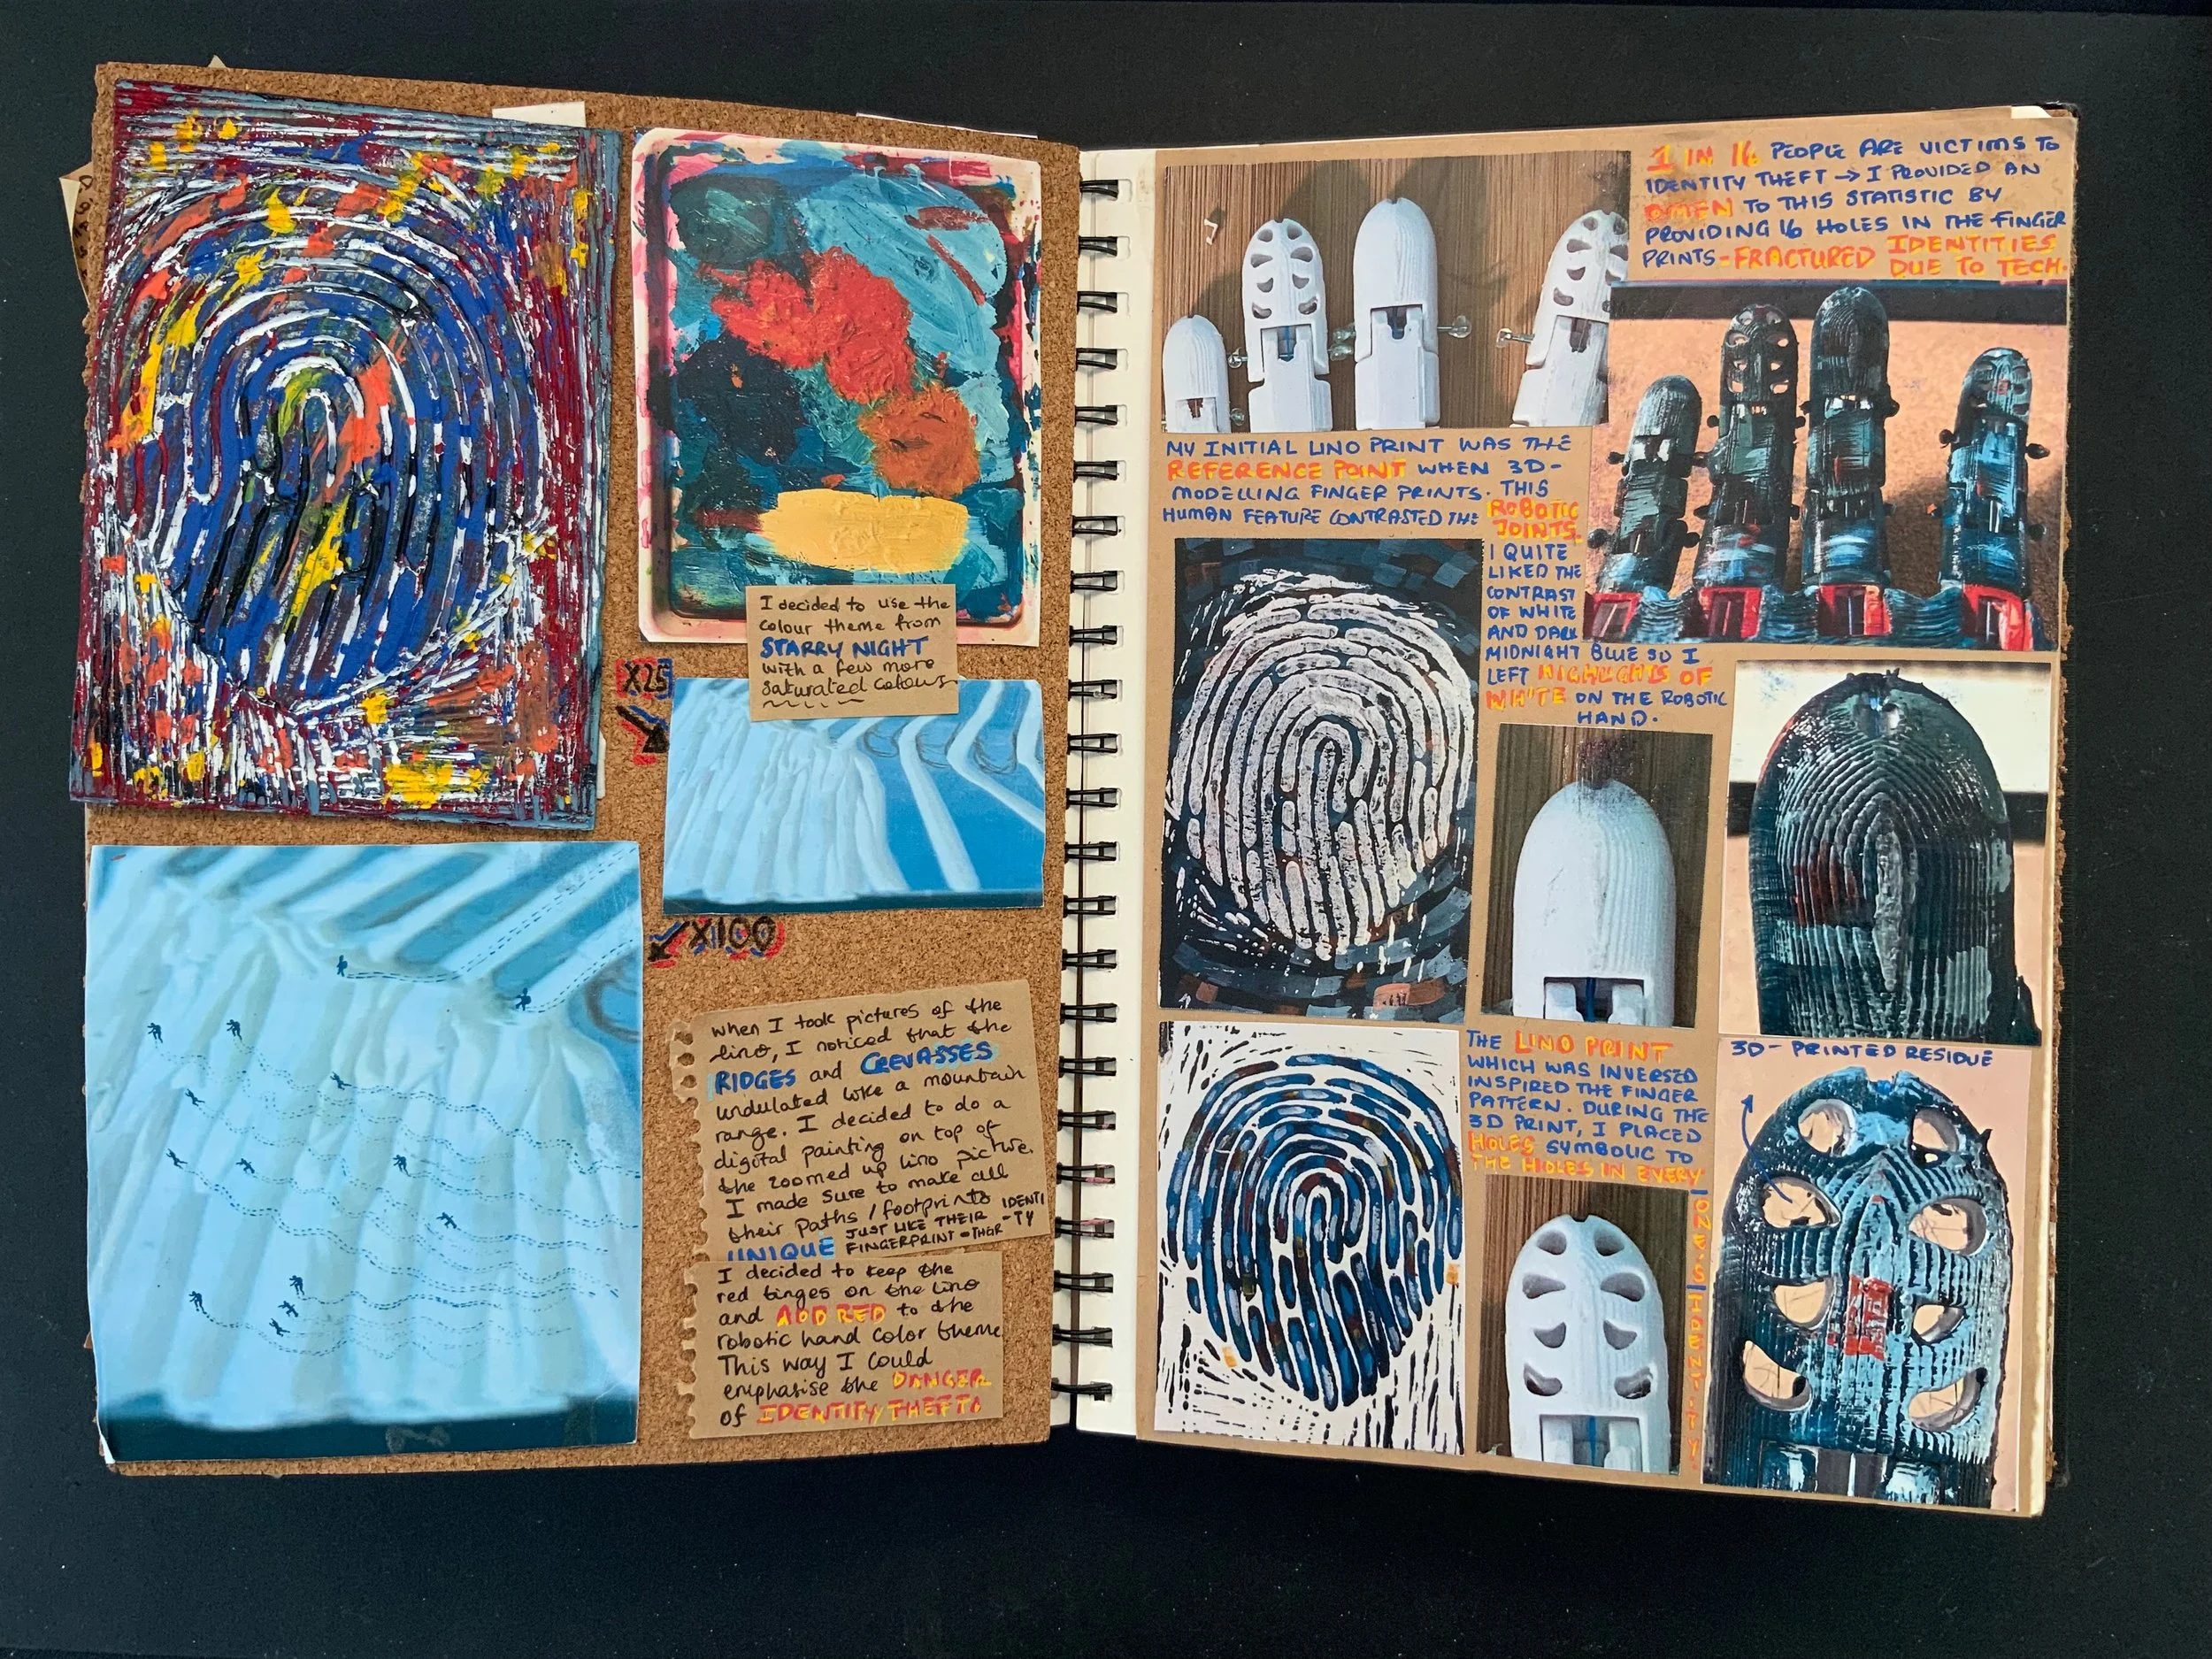 I decided to use the
colour theme from
STARRY NIGHT
with a few more
saturated colours
X25
X100
when I took pictures of the
lino, I noticed that the
RIDGES and CREVASSES
undulated like a mountain
range. I decided to do a
digital painting on top of
the zoomed up lino picture.
I made sure to make all
their paths / footprints IDENTI
UNIQUE JUST LIKE THEIR -TY
FINGERPRINT -THEIR
I decided to keep the
red tinges on the lino
and ADD RED to the
robotic hand color theme
This way I could
emphasise the DANGER
of IDENTITY THEFT
1 IN 16 PEOPLE ARE VICTIMS TO
IDENTITY THEFT → I PROVIDED AN
OMEN TO THIS STATISTIC BY
PROVIDING 16 HOLES IN THE FINGER
PRINTS - FRACTURED IDENTITIES
DUE TO TECH.
MY INITIAL LINO PRINT WAS THE
REFERENCE POINT WHEN 3D-
MODELLING FINGER PRINTS. THIS
HUMAN FEATURE CONTRASTED THE ROBOTIC
JOINTS.
I QUITE
LIKED THE
CONTRAST
OF WHITE
AND DARK
MIDNIGHT BLUE SO I
LEFT HIGHLIGHTS OF
WHITE ON THE ROBOTIC
HAND.
THE LINO PRINT
WHICH WAS INVERSED
INSPIRED THE FINGER
PATTERN. DURING THE
3D PRINT, I PLACED
HOLES SYMBOLIC TO
THE HOLES IN EVERY
ONE'S IDENTITY.
3D-PRINTED RESIDUE